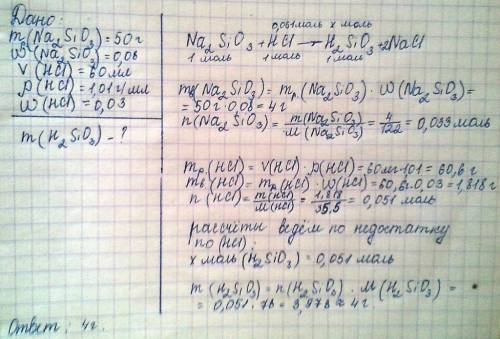 Дано:
m(Na₂SiO₃)=50г
w(Na₂SiO₃)=0,08
V(HCl)=60мл
ρ(HCl)=1,01г/мл
w(HCl)=0,03
m(H₂SiO₃)-?
0,051моль x моль
Na₂SiO₃+HCl→H₂SiO₃+2NaCl
1 моль 1моль 1моль
mв(Na₂SiO₃)=mр(Na₂SiO₃)·w(Na₂SiO₃)=
=50г·0,08=4г
n(Na₂SiO₃)=m(Na₂SiO₃)/M(Na₂SiO₃)=4/122=0,033моль
mр.(HCl)=V(HCl)·ρ(HCl)=60мл·1,01=60,6г
mв.(HCl)=mр(HCl)·w(HCl)=60,6г·0,03=1,818г
n(HCl)=m(HCl)/M(HCl)=1,818/35,5=0,051 моль
рассчёты ведём по недостатку
по(HCl):
x моль(H₂SiO₃)=0,051моль
m(H₂SiO₃)=n(H₂SiO₃)·M(H₂SiO₃)=
=0,051·78=3,978≈4г.
Ответ: 4г.